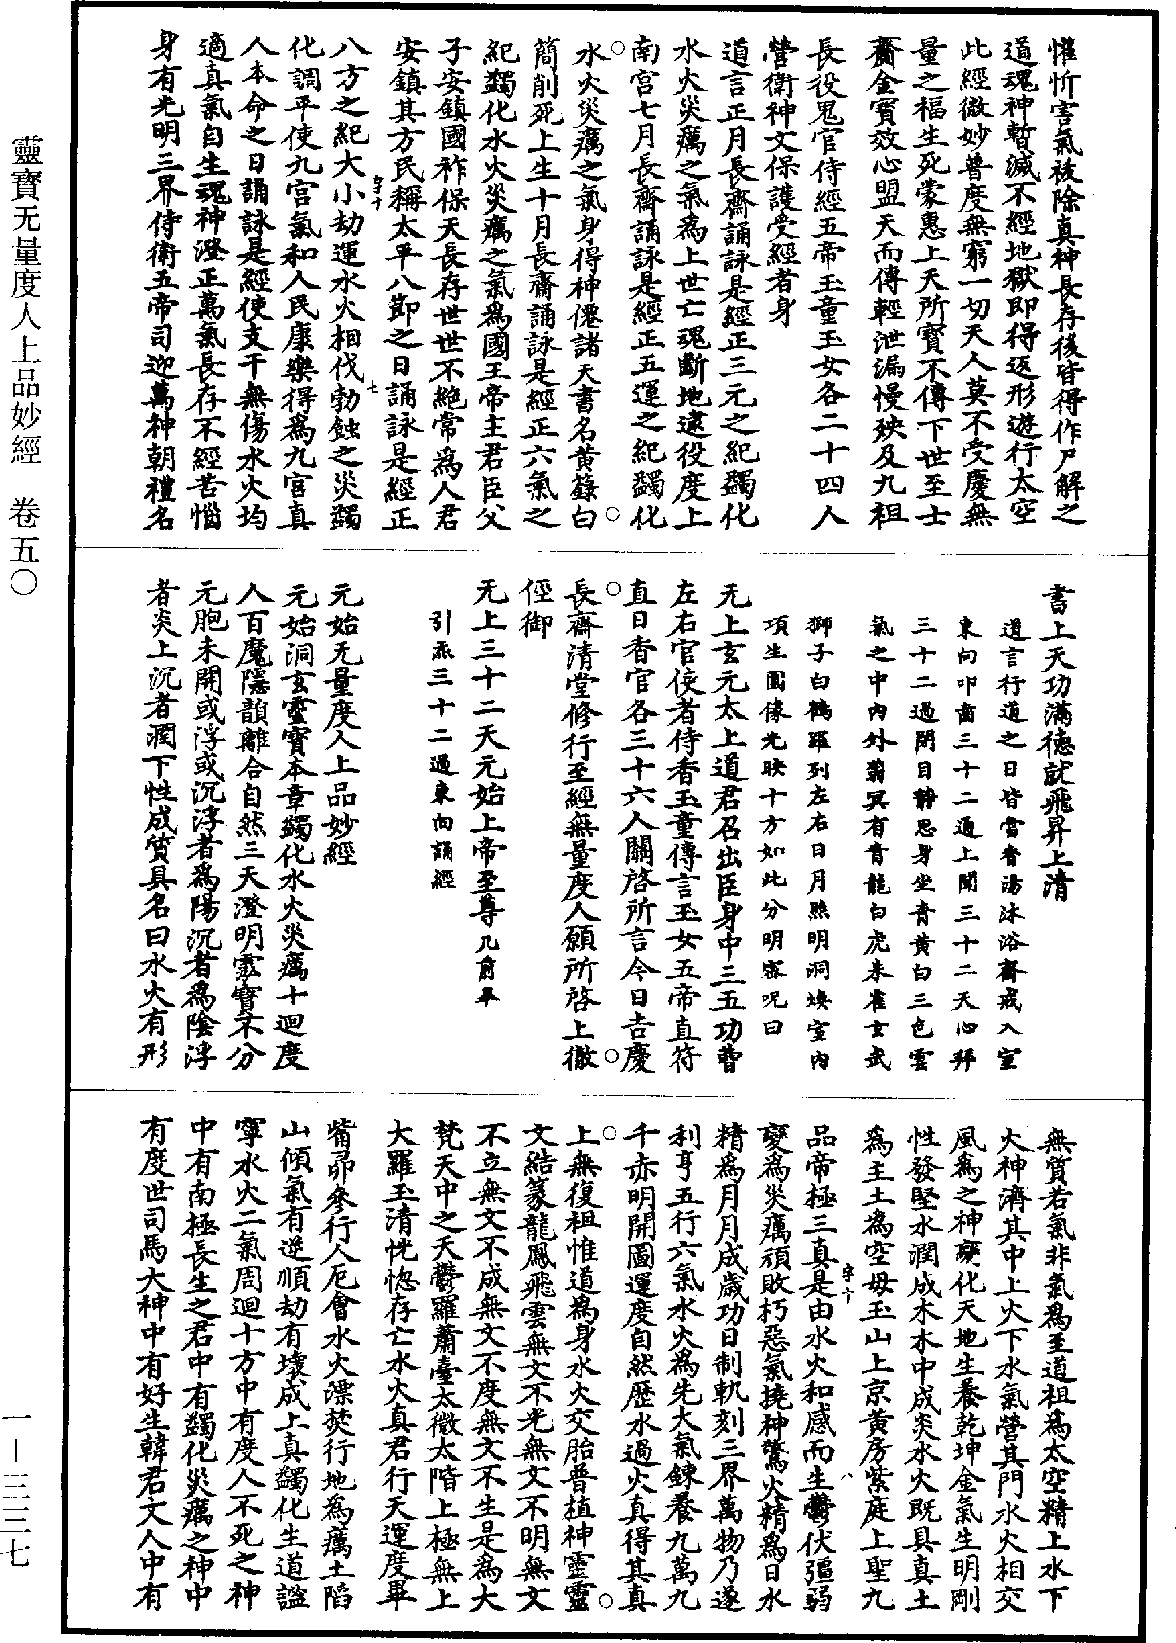 懽忻害氣被除真神長存後皆得作尸解之
道魂神暫滅不經地獄即得返形遊行太空
此經微妙普度無窮一切天人莫不受慶無
量之福生死蒙惠上天所寶不傳下世至士
齎金寶效心盟天而傳輕泄漏慢殃及九祖
長役鬼官侍經五帝玉童玉女各二十四人
營衛神文保護受經者身
道言正月長齋誦詠是經正三元之紀蠲化
水火災癘之氣為上世亡魂斷地逮役度上
南宮七月長齋誦詠是經正五運之紀蠲化
水火災癘之氣身得神僊諸天書名黃籙白
簡削死上生十月長齋誦詠是經正六氣之
紀蠲化水火災癘之氣為國王帝主君臣父
子安鎮國祚保天長存世世不絕常為人君
安鎮其方民稱太平八節之日誦詠是經正
八方之紀大小劫運水火相伐勃蝕之災蠲
化調平使九宮氣和人民康樂得為九宮真
人本命之日誦詠是經使支干無傷水火均
適真氣自生魂神澄正萬氣長存不經苦惱
身有光明三界侍衛五帝司迎萬神朝禮名
書上天功滿德就飛昇上清
道言行道之日皆當香湯沐浴齋戒入室
東向叩齒三十二通上聞三十二天心拜
三十二過閉目靜思身坐青黃白三色雲
氣之中內外蓊冥有青龍白虎朱雀玄武
獅子白鶴羅列左右日月照明洞煥室內
項生圓像光映十方如此分明密呪曰
无上玄元太上道君召出臣身中三五功曹
左右官使者侍香玉童傳言玉女五帝直符
直日香官各三十六人關啓所言今日吉慶
長齋清堂修行至經無量度人願所啓上徹
徑御
无上三十二天元始上帝至尊几前畢
引炁三十二過東向誦經
元始无量度人上品妙經
元始洞玄靈寶本章蠲化水火災癘十迴度
人百魔隱韻離合自然三天澄明靈寶不分
元胞未開或浮或沉浮者為陽沉者為陰浮
者炎上沉者潤下性成質具名曰水火有形
無質若氣非氣為至道祖為太空精上水下
火神濟其中上火下水氣營其門水火相交
風為之神變化天地生養乾坤金氣生明剛
性發堅水潤成木木中成炎水火既具真土
為主土為空母玉山上京黃房紫庭上聖九
品帝極三真是由水火和感而生鬱伏彊弱
變為災癘頑敗朽惡氣撓神驚火精為日水
精為月月成歲功日制軌刻三界萬物乃遂
利亨五行六氣水火為先大氣鍊養九萬九
千赤明開圖運度自然歷水過火真得其真
上無復祖惟道為身水火交胎普植神靈靈
文結篆龍鳳飛雲無文不光無文不明無文
不立無文不成無文不度無文不生是為大
梵天中之天鬱羅蕭臺太微太階上極無上
大羅玉清恍惚存亡水火真君行天運度畢
觜昴參行人厄會水火漂焚行地為癘土陷
山傾氣有逆順劫有壞成上真蠲化生道謐
寧水火二氣周迴十方中有度人不死之神
中有南極長生之君中有蠲化災癘之神中
有度世司馬大神中有好生韓君文人中有
靈寶无量度人上品妙經　卷五〇
一—三三七